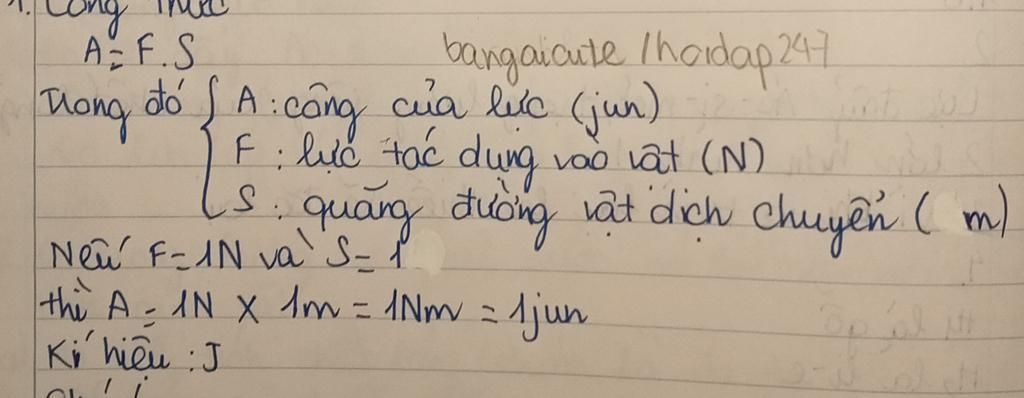 1. Công thức
A = F.S
bangaicute / hoidap247
Trong đó { A : công của lực (jun)
F : lực tác dụng vào vật (N)
S : quãng đường vật dịch chuyển ( m)
Nếu F = 1N và S = 1
thì A = 1N x 1m = 1Nm = 1jun
Kí hiệu : J